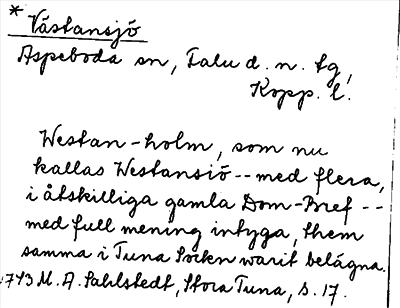 * Västansjö
Aspeboda sn, Falu d. n. tg,
Kopp. l.
Westan-holm, som nu
kallas Westansiö -- med flera,
i åtskilliga gamla Dom-Bref --
med full mening intyga, them
samma i Tuna Socken warit belägna.
1743 M. A. Sahlstedt, Stora Tuna, s. 17.